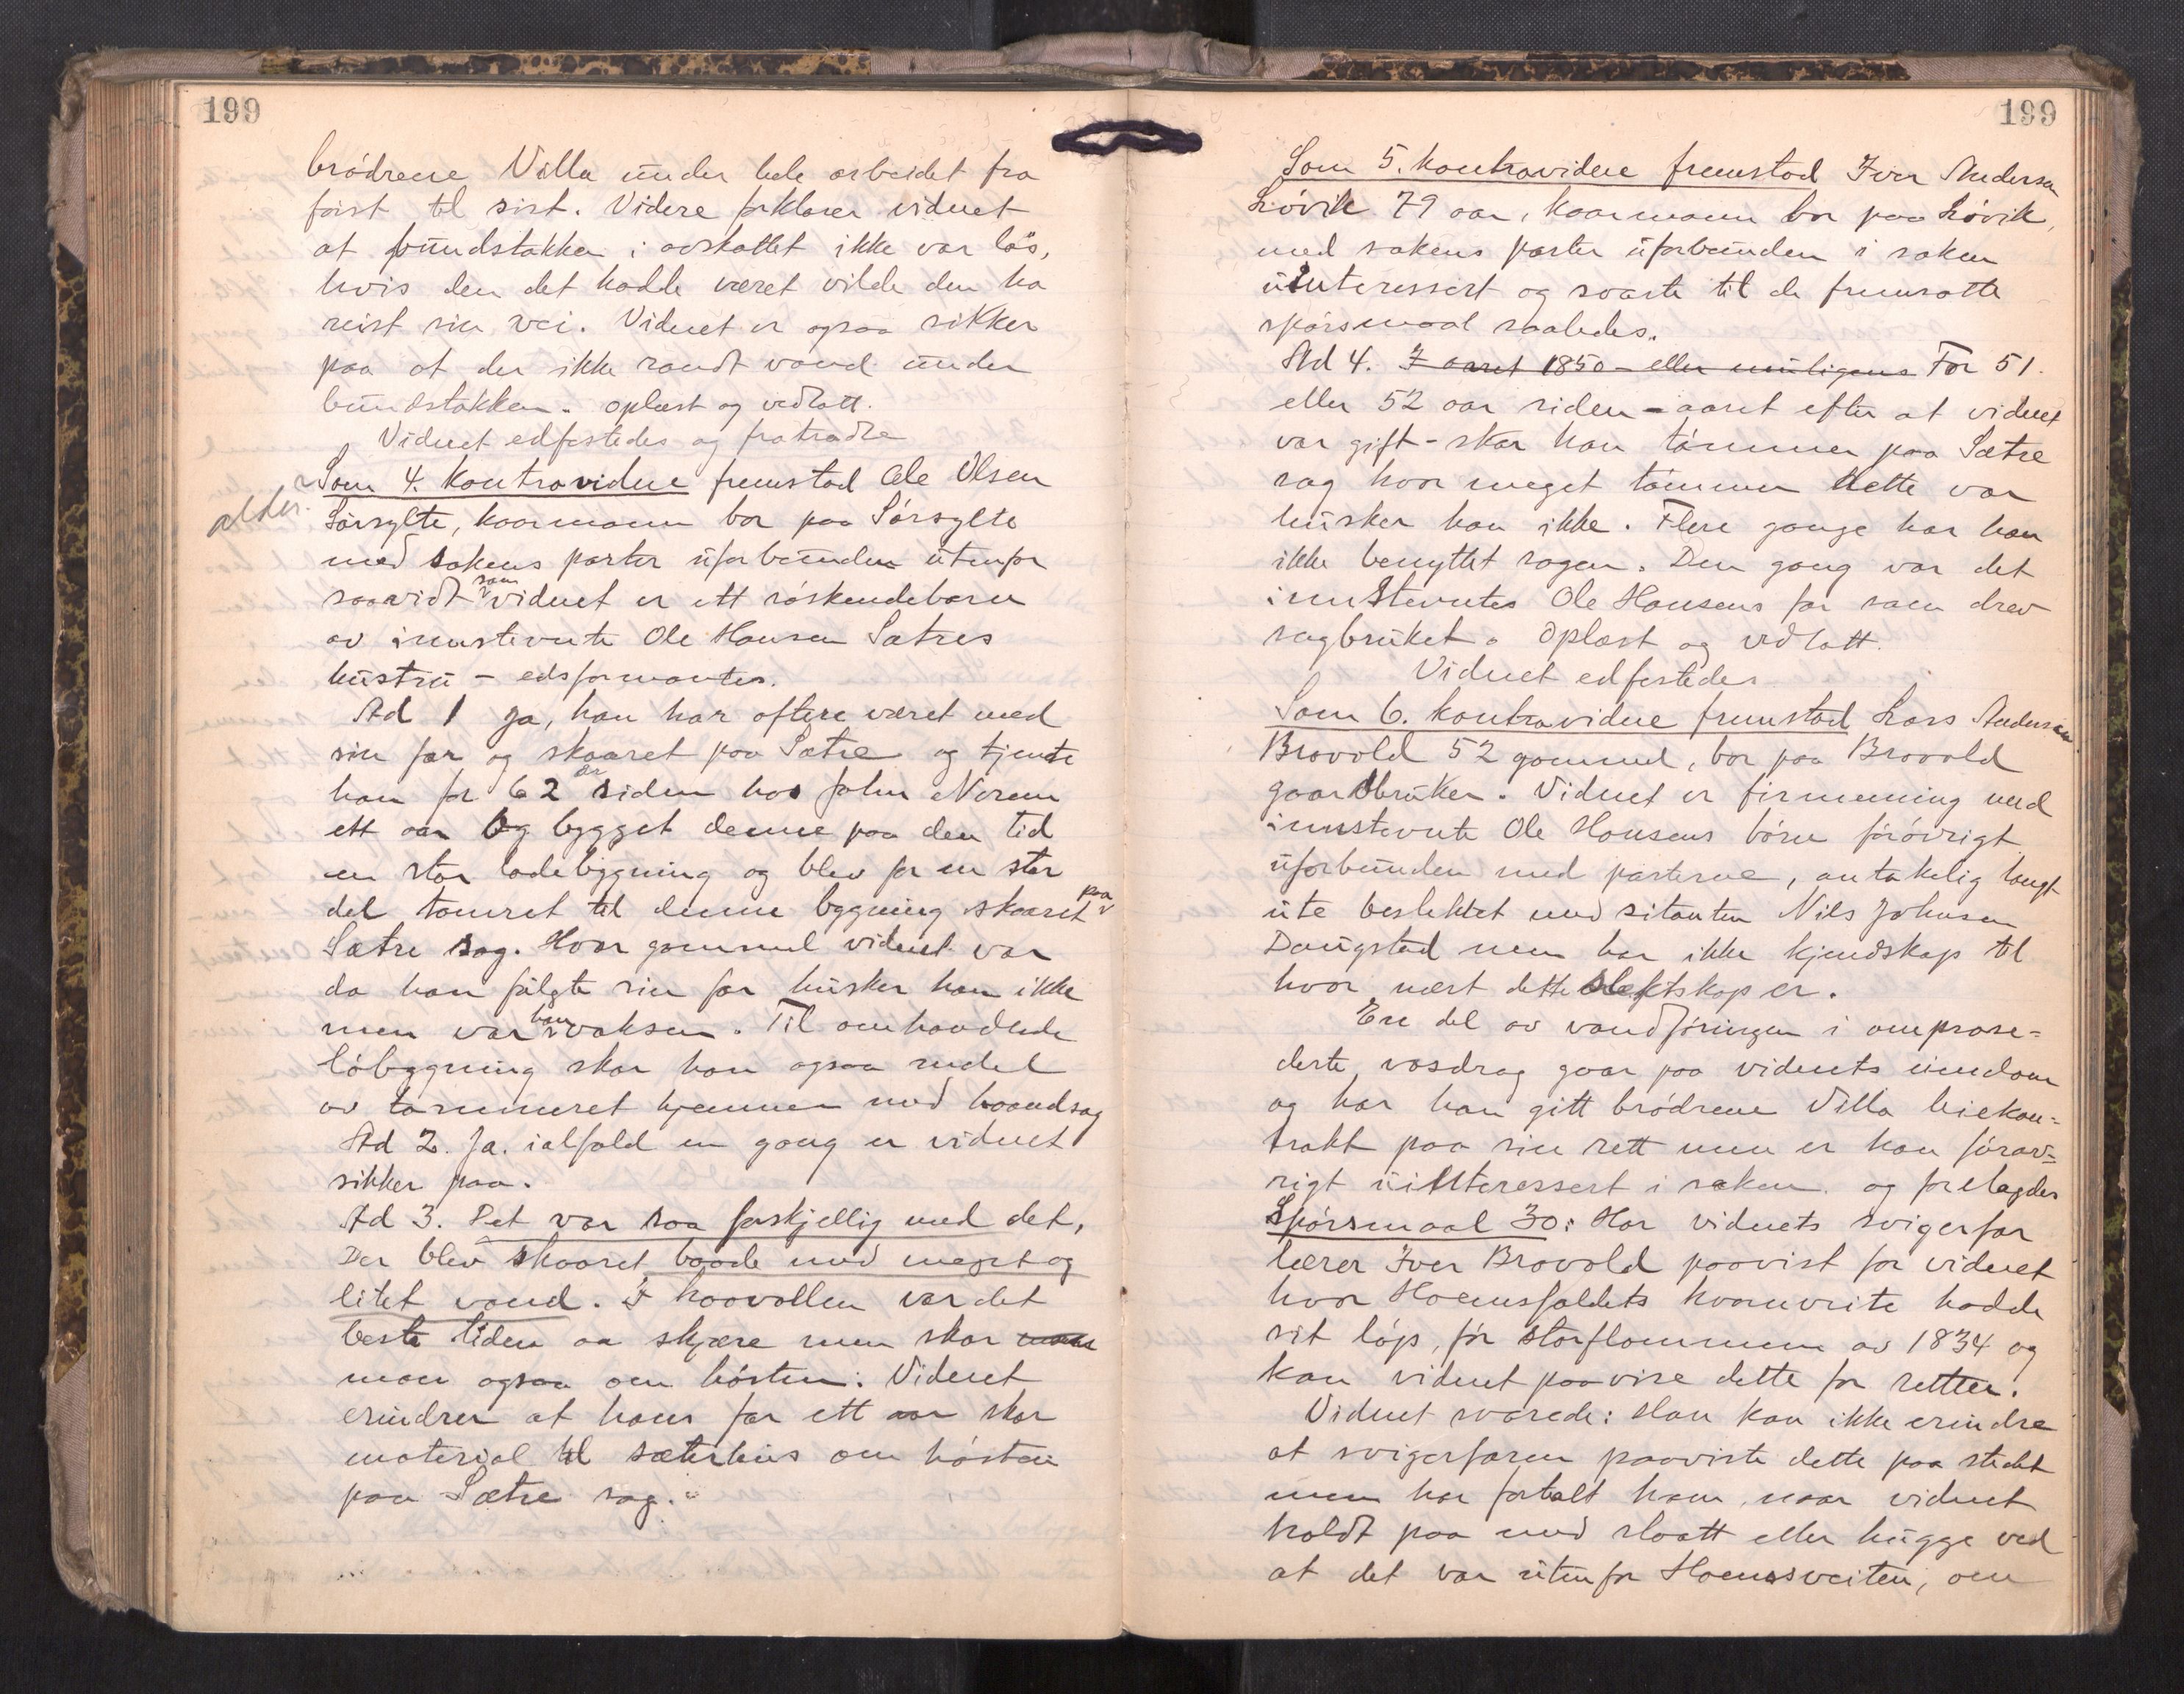 199
brödrene Villa under hele arbeidet fra
först til sist. Videre forklarer vidnet
at bundstokken i avskottet ikke var lös,
hvis den det hadde været vilde den ha
reist sin vei. Vidnet er ogsaa sikker
paa at der ikke randt vand under
bundstokken. oplæst og vedtatt.
Vidnet edfestedes og fratraadte
Som 4. Kontravidne fremstod Ole Olsen
alder.
Sörsylte, kaarmann bor paa Sörsylte
med sakens parter uforbunden utenfor
saavidt som vidnet er ett söskendebarn
av innstevnte Ole Hansen Sætres
hustru - edsformantes.
Ad 1 Ja, han har oftere været med
sin far og skaaret paa Sætre og tjente
han for 62 aar siden hos John Nerem
ett aar og bygget denne paa den tid
en stor ladebygning og blev for en stor
del tömret til denne bygning skaaret paa
Sætre sag. Hvor gammel vidnet var
da han fulgte sin far husker han ikke
men var han voksen. Til omhandlede
löbygning skar han ogsaa endel
av tömmeret hjemme med haandsag
Ad 2. Ja. ialfald en gang er vidnet
sikker paa.
Ad 3. Det var saa forskjellig med det,
Der blev skaaret baade med meget og
litet vand. I haavollen var det
beste tiden aa skjære men skar
man ogsaa om hösten. Vidnet
erindrer at hans far ett aar skar
material til sæterhus om hösten
paa Sætre sag.
199
Som 5. kontravidne fremstod Iver Andersen
Lövik 79 aar, kaarmann bor paa Lövik,
med sakens parter uforbunden i saken
uinteressert og svarte til de fremsatte
spörsmaal saaledes.
Ad 4. I aaret 1850 - eller muligens For 51.
eller 52 aar siden - aaret efter at vidnet
var gift - skar han tömmer paa Sætre
sag hvor meget tömmer dette var
husker han ikke. Flere gange har han
ikke benyttet sagen. Den gang var det
innstevntes Ole Hansens far som drev
sagbruket. Oplæst og vedtatt.
Vidnet edfestedes
Som 6. kontravidne fremstod Lars Andersen
Brovold 52 gammel, bor paa Brovold
gaardbruker. Vidnet er firmenning med
innstevnte Ole Hansens börn forövrigt
uforbunden med parterne, antakelig langt
ute beslektet med sitanten Nils Johnsen
Daugstad men har ikke kjendskap til
hvor nært dette slektskap er.
En del av vandföringen i omprose-
derte vasdrag gaar paa vidnets eiendom
og har han gitt brödrene Villa leiekon-
trakt paa sin rett men er han forøv-
rigt uinteressert i saken og forelagdes
Spörsmaal 30: Har vidnets svigerfar
lærer Iver Brovold paavist for vidnet
hvor Hoemsfaldets kvernveite hadde
sit löp, för storflommen av 1834 og
kan vidnet paavise dette for retten.
Vidnet svarede: Han kan ikke erindre
at svigerfaren paaviste dette paa stedet
men har fortalt ham, naar vidnet
holdt paa med slaatt eller hugge ved
at det var utenfor Hoemsveiten, om